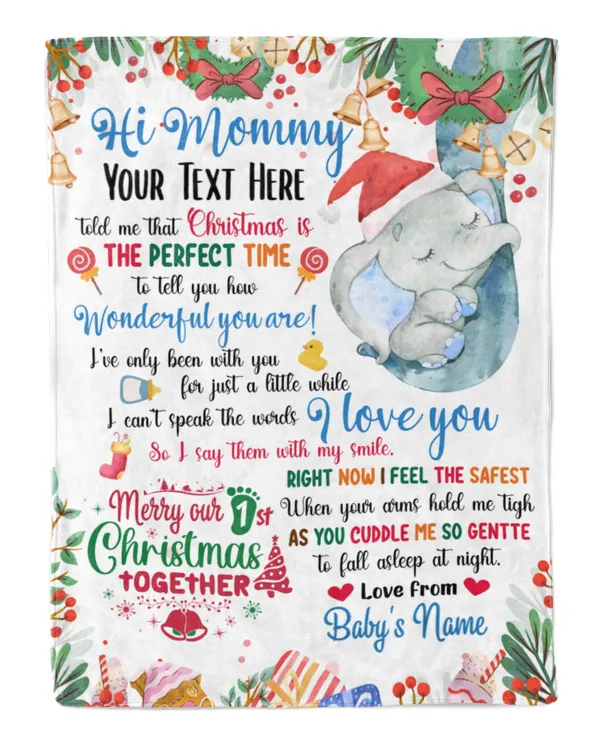 Hi Mommy
YOUR TEXT HERE
told me that Christmas is
THE PERFECT TIME
to tell you how
Wonderful you are!
I've only been with you
for just a little while
I can't speak the words I love you
So I say them with my smile.
RIGHT NOW I FEEL THE SAFEST
When your arms hold me tigh
AS YOU CUDDLE ME SO GENTTE
to fall asleep at night.
Love From
Baby's Name
Merry our 1st
Christmas
TOGETHER